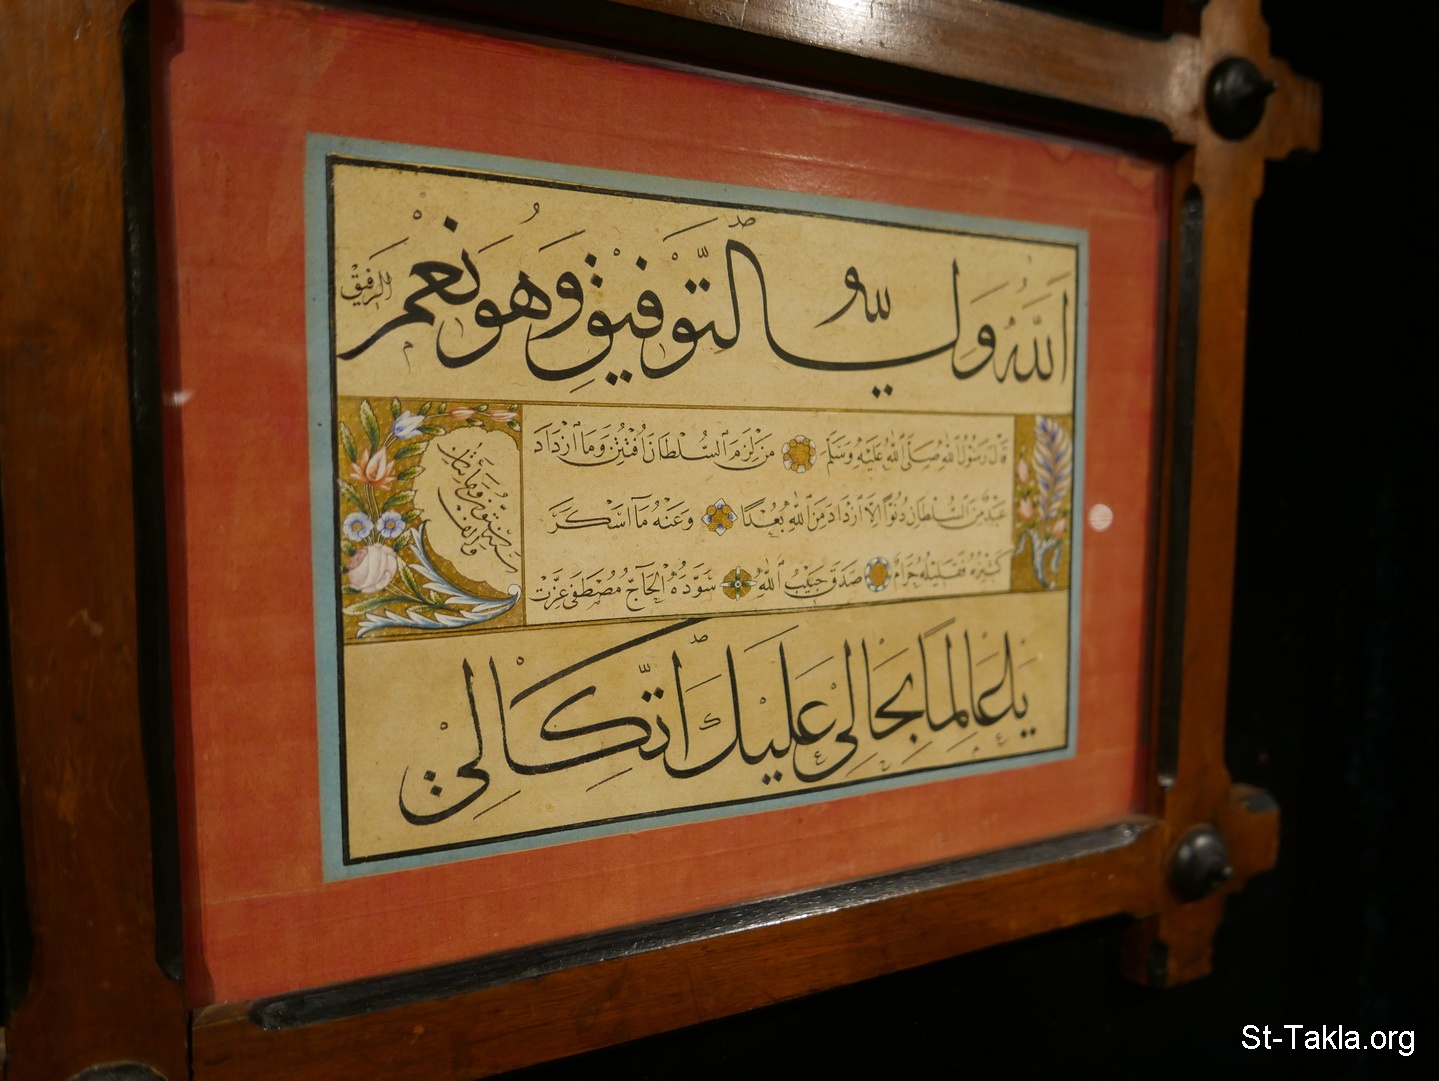 اَللّٰهُ وَلِيُّ التَّوْفِيْقِ وَهُوَ نِعْمَ الرَّفِيْقُ
قَالَ رَسُولُ اللّٰهِ صَلَّى اللّٰهُ عَلَيْهِ وَسَلَّمَ مَنْ لَزِمَ السُّلْطَانَ افْتُتِنَ وَمَا ازْدَادَ
عَبْدٌ مِنَ السُّلْطَانِ دُنُوًّا اِلَّا ازْدَادَ مِنَ اللّٰهِ بُعْدًا وَعَنْهُ مَا اَسْكَرَ
كَثِيْرُهُ فَقَلِيْلُهُ حَرَامٌ صَدَقَ حَبِيْبُ اللّٰهِ سَوَّدَهُ الْحَاجّ مُصْطَفٰى عِزَّتْ
وَمِائَتَيْنِ وَاَلْف
يَا عَالِمًا بِحَالِي عَلَيْكَ اتِّكَالِيْ
St-Takla.org